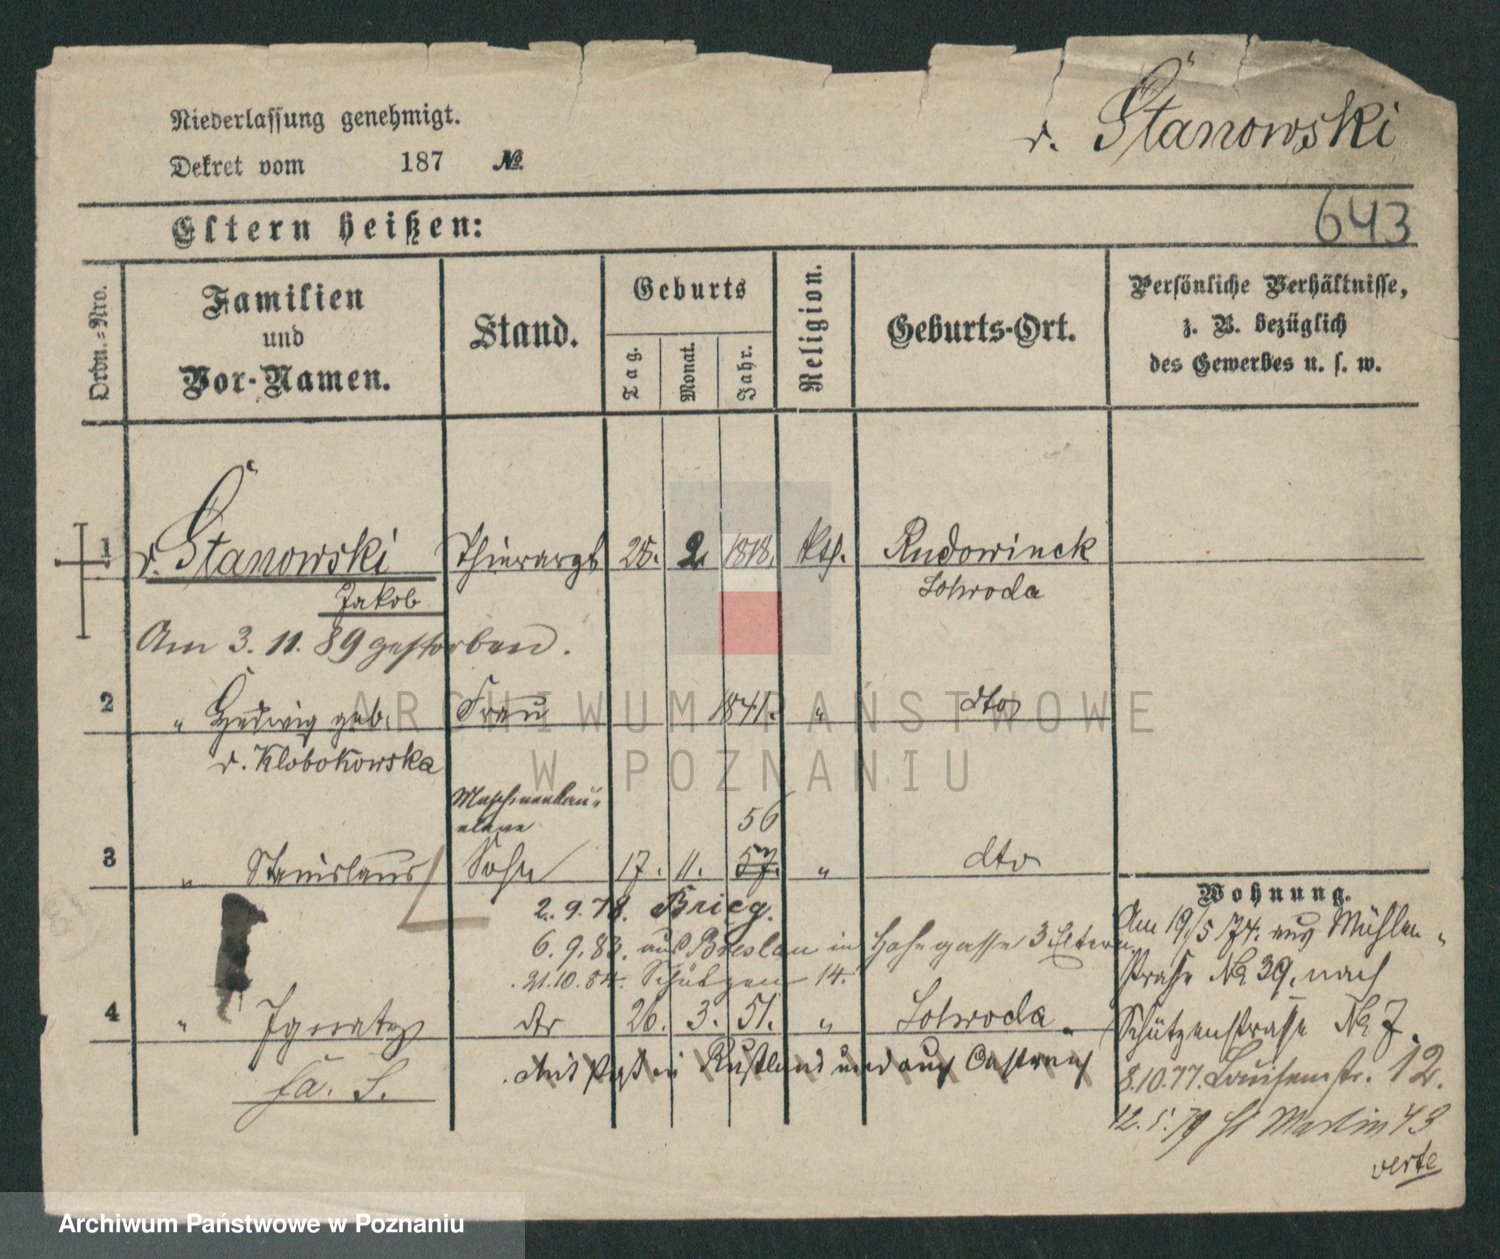 Niederlassung genehmigt.
Dekret vom 187 №
v. Stanowski
643
Eltern heißen:
Ordn.-Nro.
Familien
und
Vor-Namen.
Stand.
Geburts
Tag.
Monat.
Jahr.
Religion.
Geburts-Ort.
Persönliche Verhältnisse,
z. B. bezüglich
des Gewerbes u. s. w.
1 v. Stanowski Thierarzt 28. 2. 1818. kth. Rudowinek
Jakob
Am 3. 11. 89 gestorben.
2 " Hedwig geb. Frau 1841. " dto
v. Klobokowska
Maschinenbau-
eleve
56
3 " Stanislaus Sohn 17. 11. 57. " dto
Wohnung.
2. 9. 78. Brieg.
6. 9. 83. aus Breslau in Hohegasse 3 Eltern
21. 10. 84. Schützen 14.
Am 19/5 74. aus Mühlen-
straße № 39. nach
Schützenstraße № 7.
4 " Ignatz dto 26. 3. 51. "
in Rußland und auch Oestreich
fa. S.
8.10.77. Louisenstr. 12.
12. 5. 79 St Martin 43
verte
ARCHIWUM PAŃSTWOWE
W POZNANIU
Archiwum Państwowe w Poznaniu